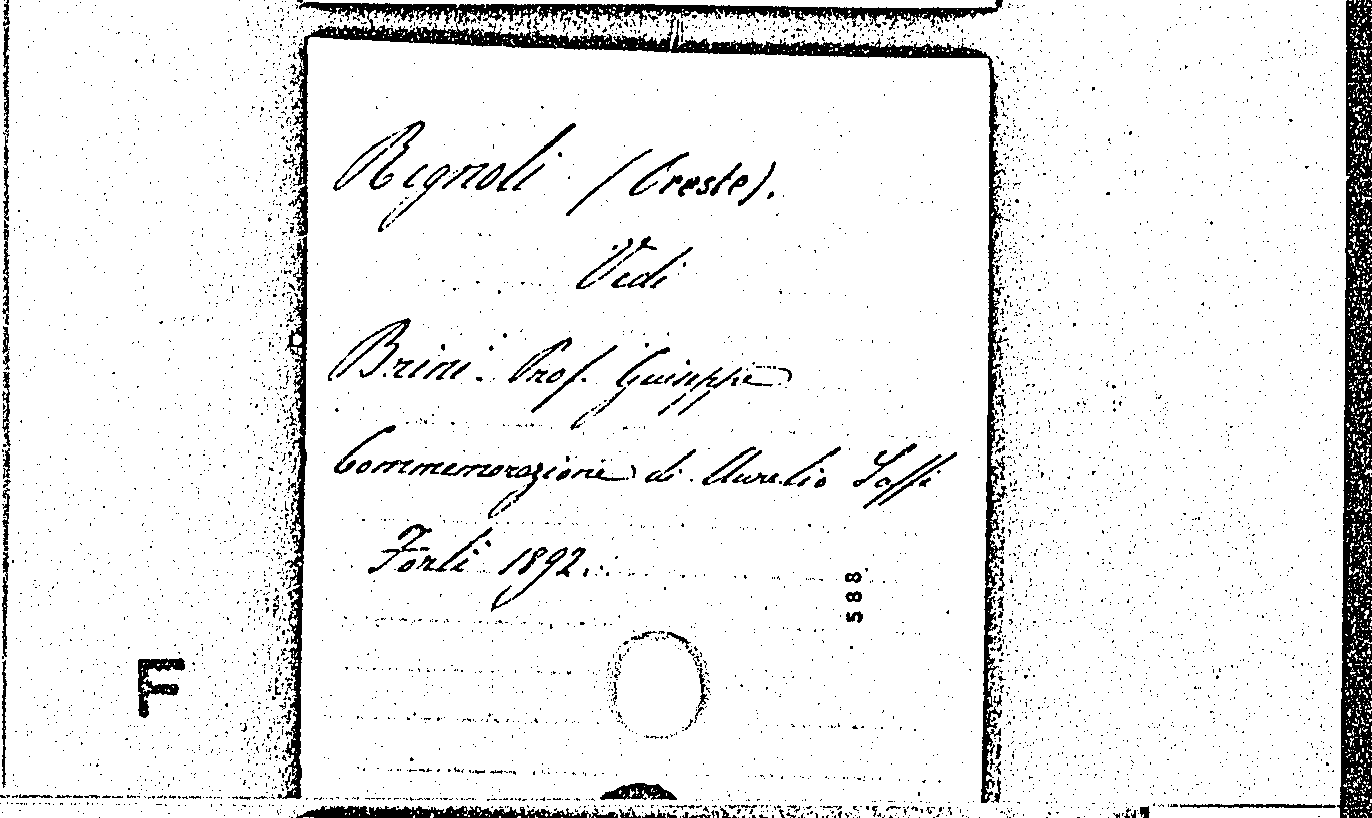 Regnoli (Oreste).
Vedi
Brini Prof. Giuseppe
Commemorazione di Aurelio Saffi
Forlì 1892.
588
F